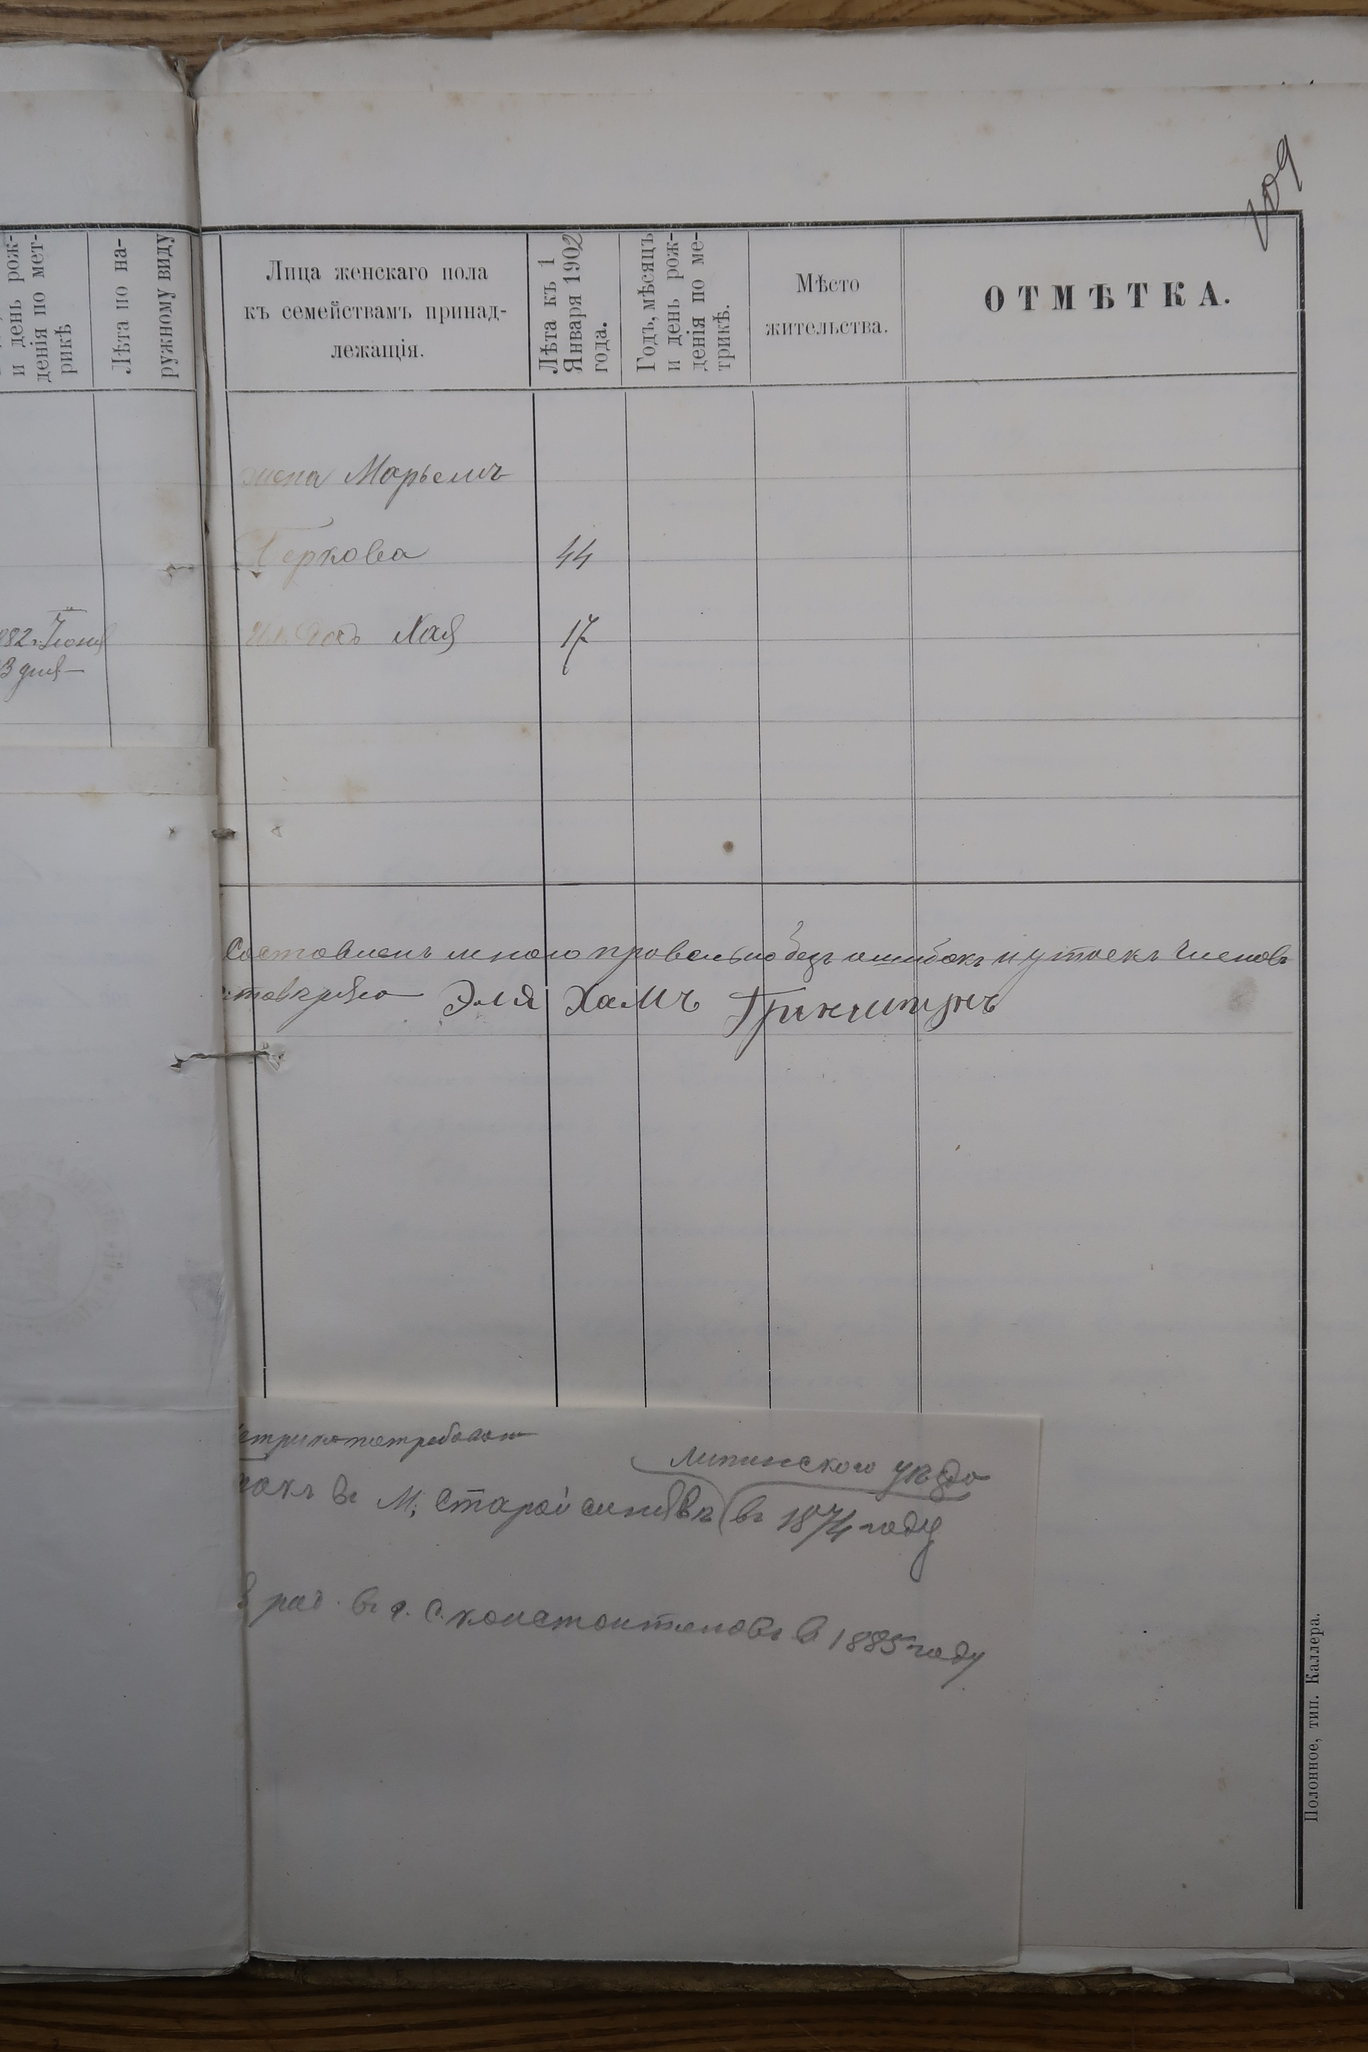 109
и день рож-
денія по мет-
рикѣ
Лѣта по на-
ружному виду
Лица женскаго пола
къ семействамъ принад-
лежащія.
Лѣта къ 1
Января 1902
года.
Годъ, мѣсяцъ
и день рож-
денія по ме-
трикѣ.
Мѣсто
жительства.
ОТМѢТКА.
жена Марьемъ
Беркова 44
882 г. Іюня
3 дня
Хая 17
Составленъ мною правельно безъ ошибокъ и утоекъ членовъ
Эля Хаимъ Гринштунъ
Липинского уѣзда
въ М. Старой синявѣ въ 1874 году
род. въ г. С. константиновѣ в 1885 году
Полонное, тип. Каллера.